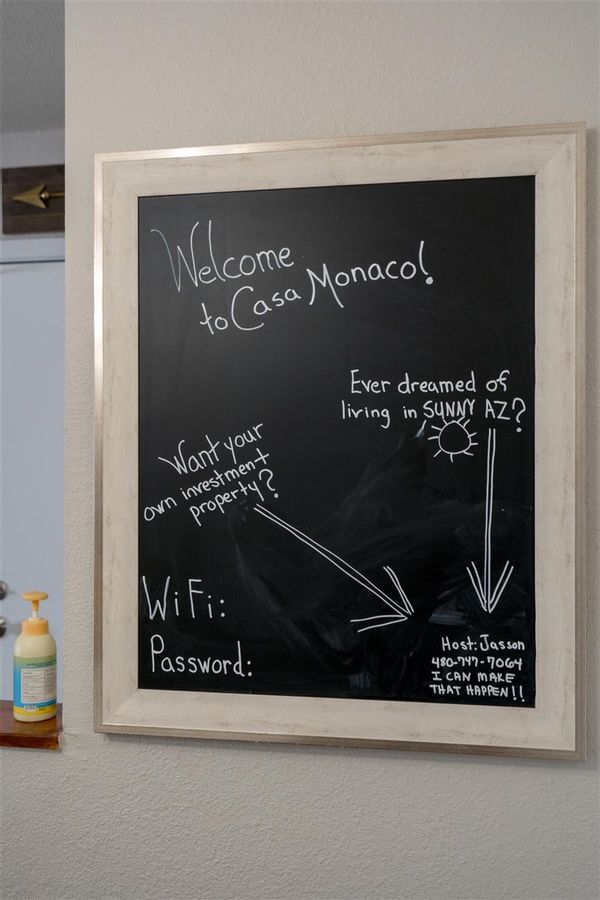 Welcome
to Casa Monaco!
Ever dreamed of
living in SUNNY AZ?
Want your
own investment
property?
WiFi:
Password:
Host: Jasson
480-747-7064
I CAN MAKE
THAT HAPPEN!!